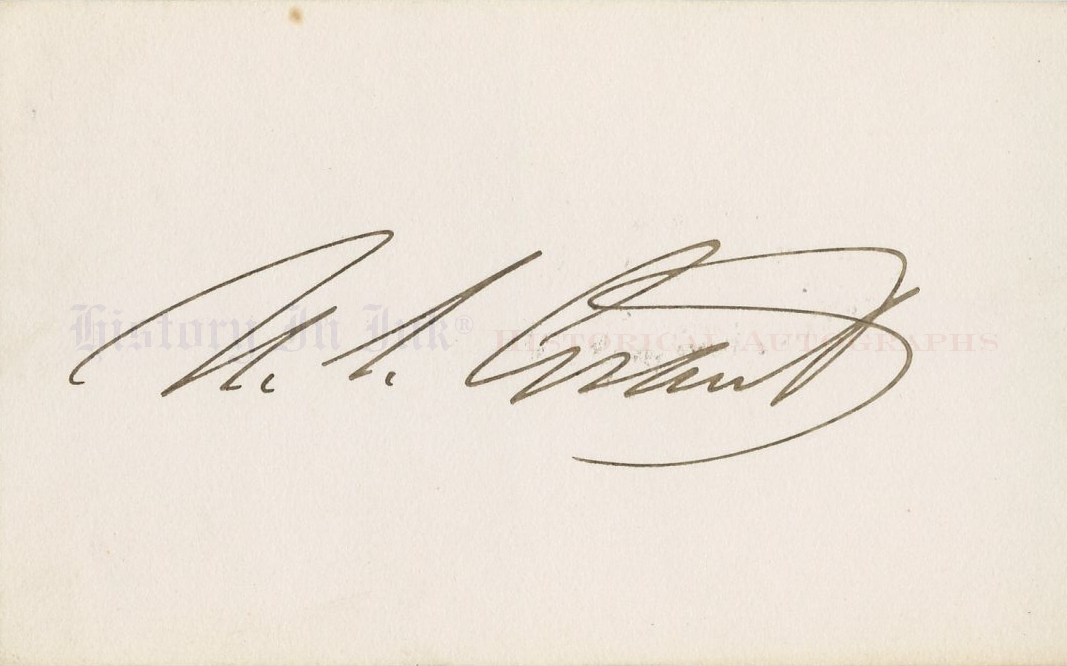 U. S. Grant
History In Ink® Historical Autographs